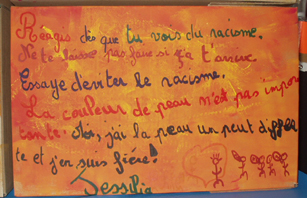 Réagis dès que tu vois du racisme.
Ne te laisse pas faire si ça t'arrive.
Essaye d'eviter le racisme.
La couleur de peau n'est pas inpor
tante. Moi, j'ai la peau un peut differ
te et j'en suis fière!
Jessica